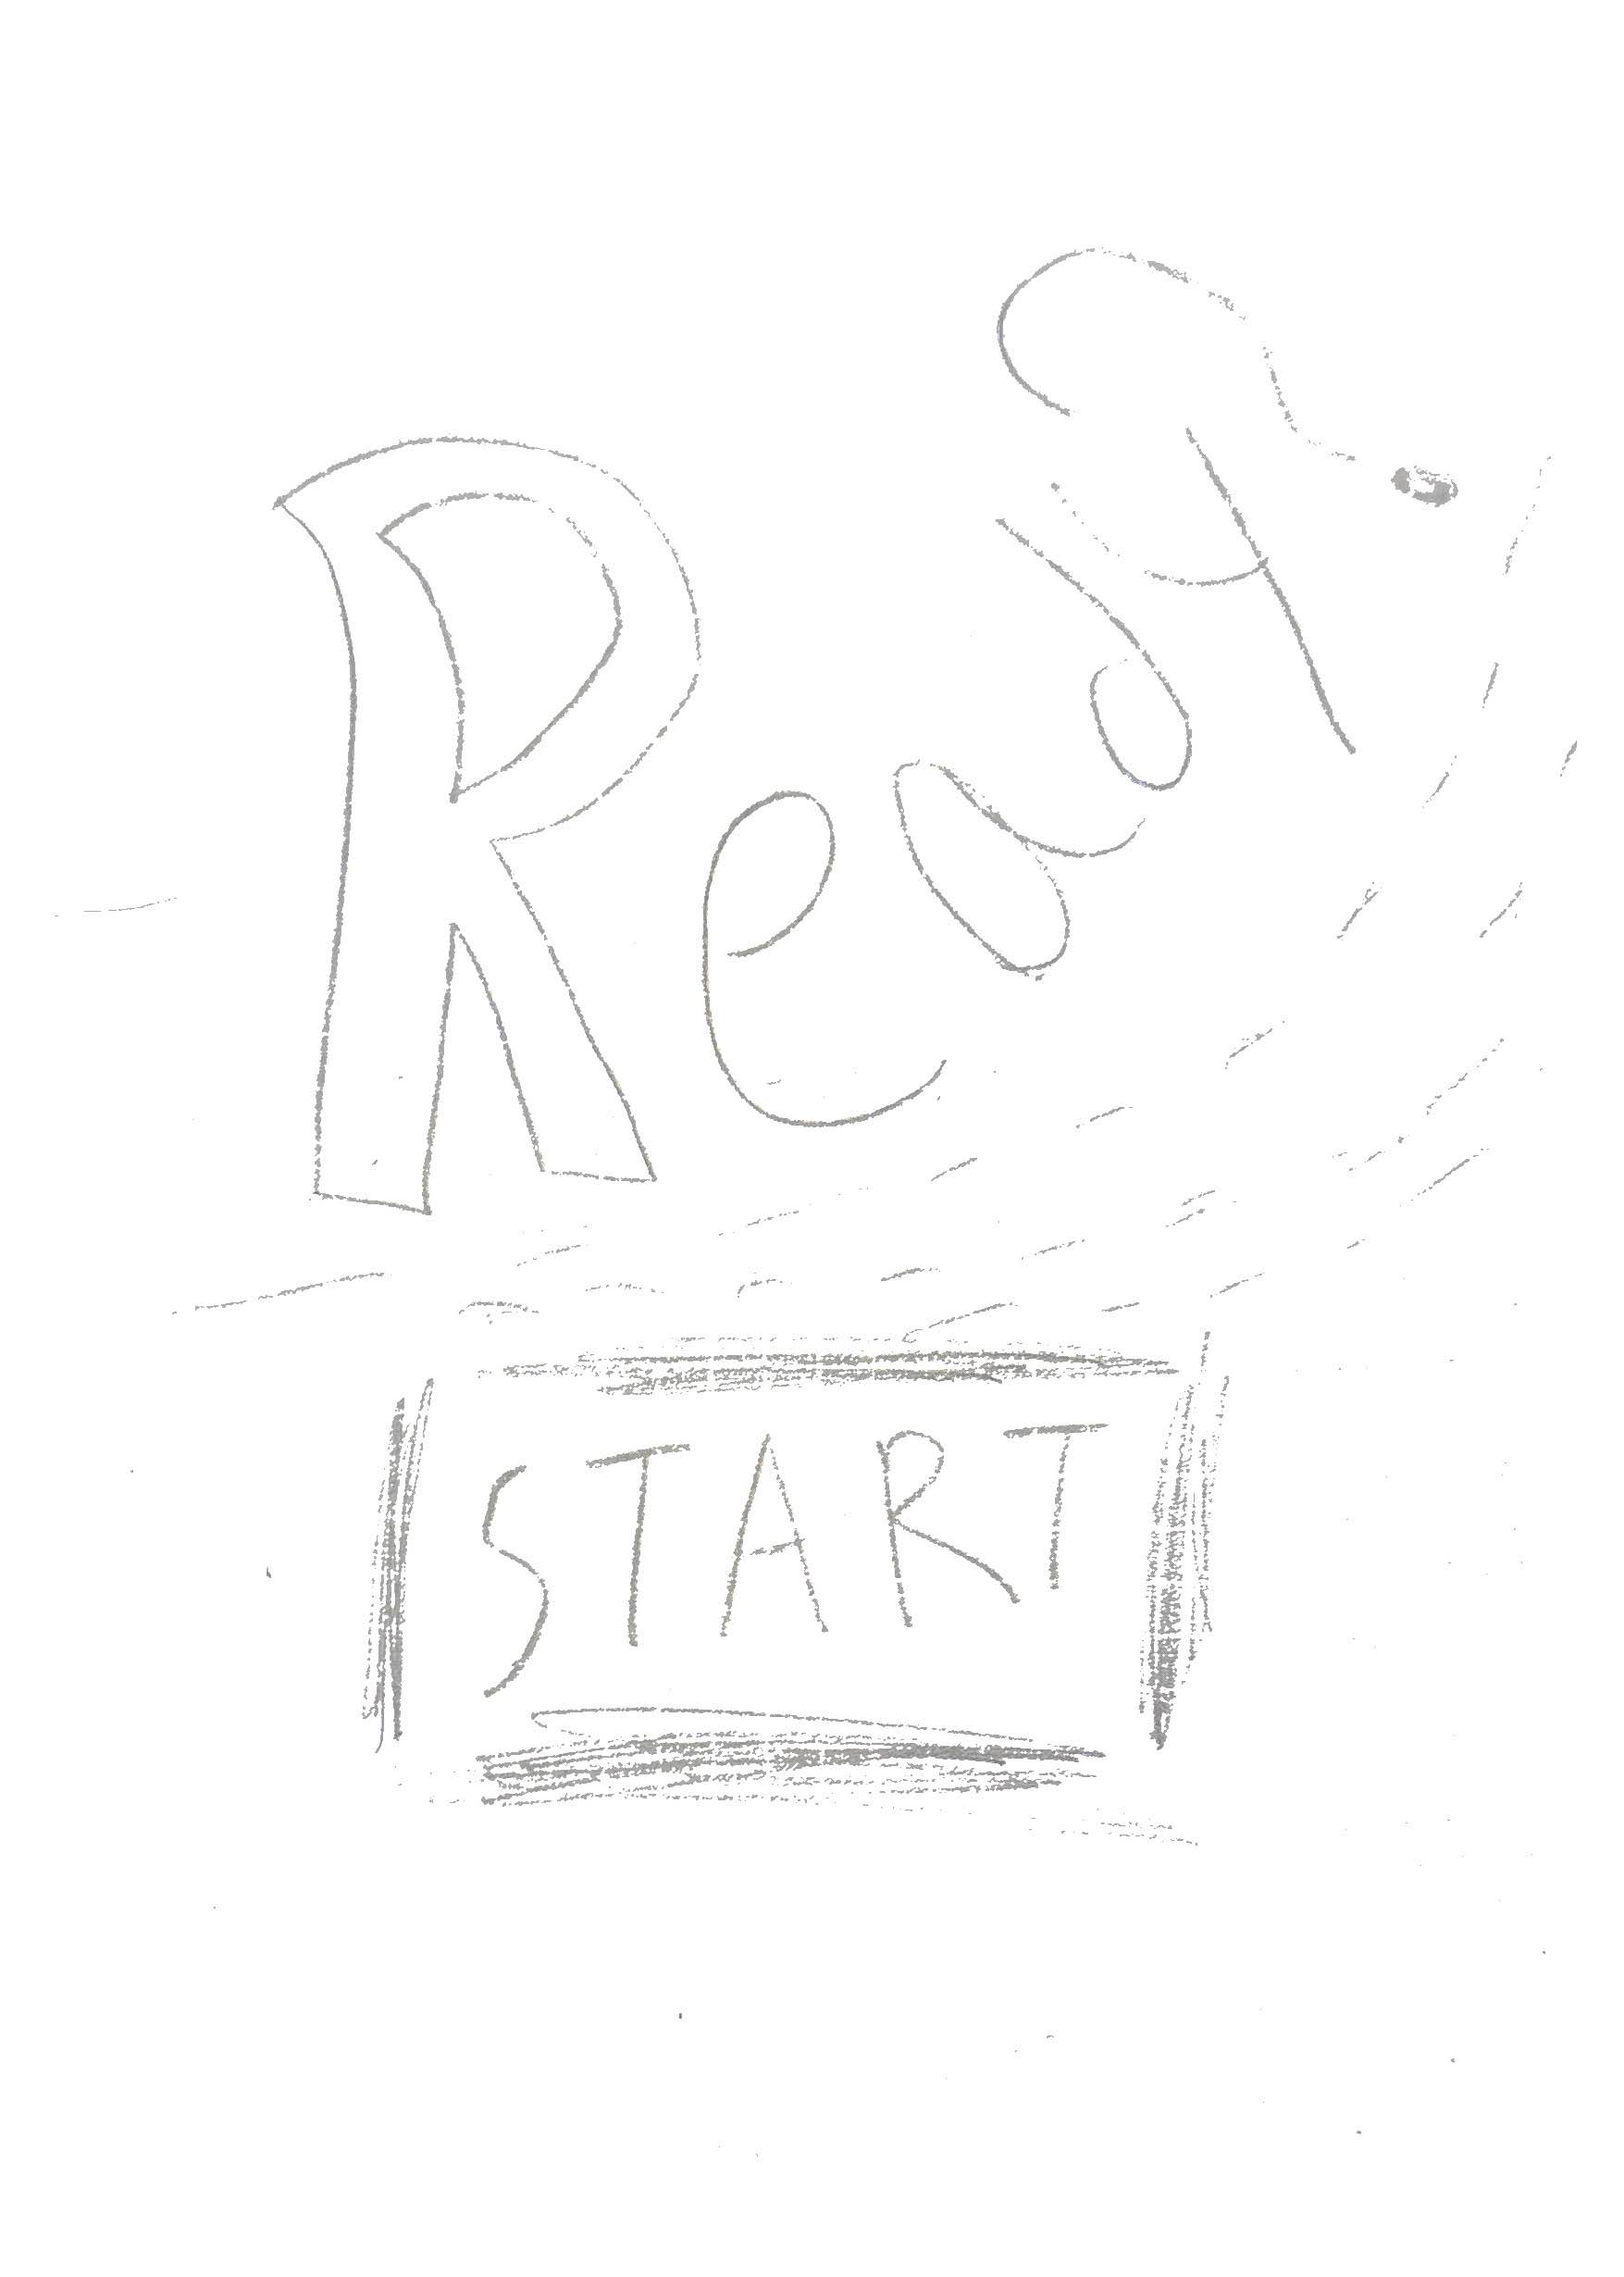 Ready?
START